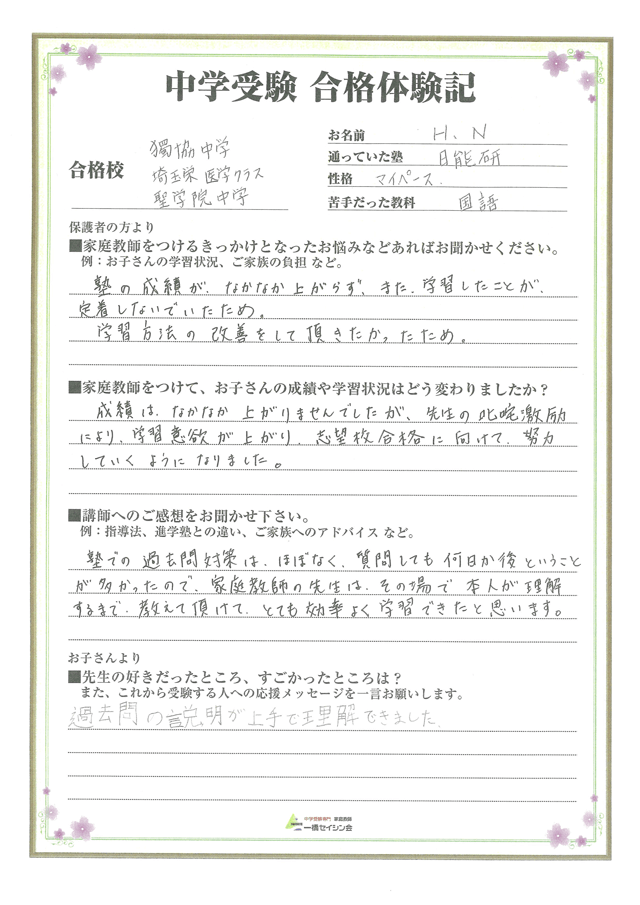 中学受験 合格体験記
合格校
獨協中学
埼玉栄 医学クラス
聖学院中学
お名前 H、N
通っていた塾 日能研
性格 マイペース.
苦手だった教科 国語
保護者の方より
■家庭教師をつけるきっかけとなったお悩みなどあればお聞かせください。
例：お子さんの学習状況、ご家族の負担 など。
塾の成績が、なかなか上がらず、また、学習したことが、
定着しないでいたため。
学習方法の改善をして頂きたかったため。
■家庭教師をつけて、お子さんの成績や学習状況はどう変わりましたか？
成績は、なかなか上がりませんでしたが、先生の叱咤激励
により、学習意欲が上がり、志望校合格に向けて、努力
していくようになりました。
■講師へのご感想をお聞かせ下さい。
例：指導法、進学塾との違い、ご家族へのアドバイス など。
塾での過去問対策は、ほぼなく、質問しても何日か後ということ
が多かったので、家庭教師の先生は、その場で本人が理解
するまで、教えて頂けて、とても効率よく学習できたと思います。
お子さんより
■先生の好きだったところ、すごかったところは？
また、これから受験する人への応援メッセージを一言お願いします。
過去問の説明が上手で理解できました.
中学受験専門 家庭教師
一橋セイシン会